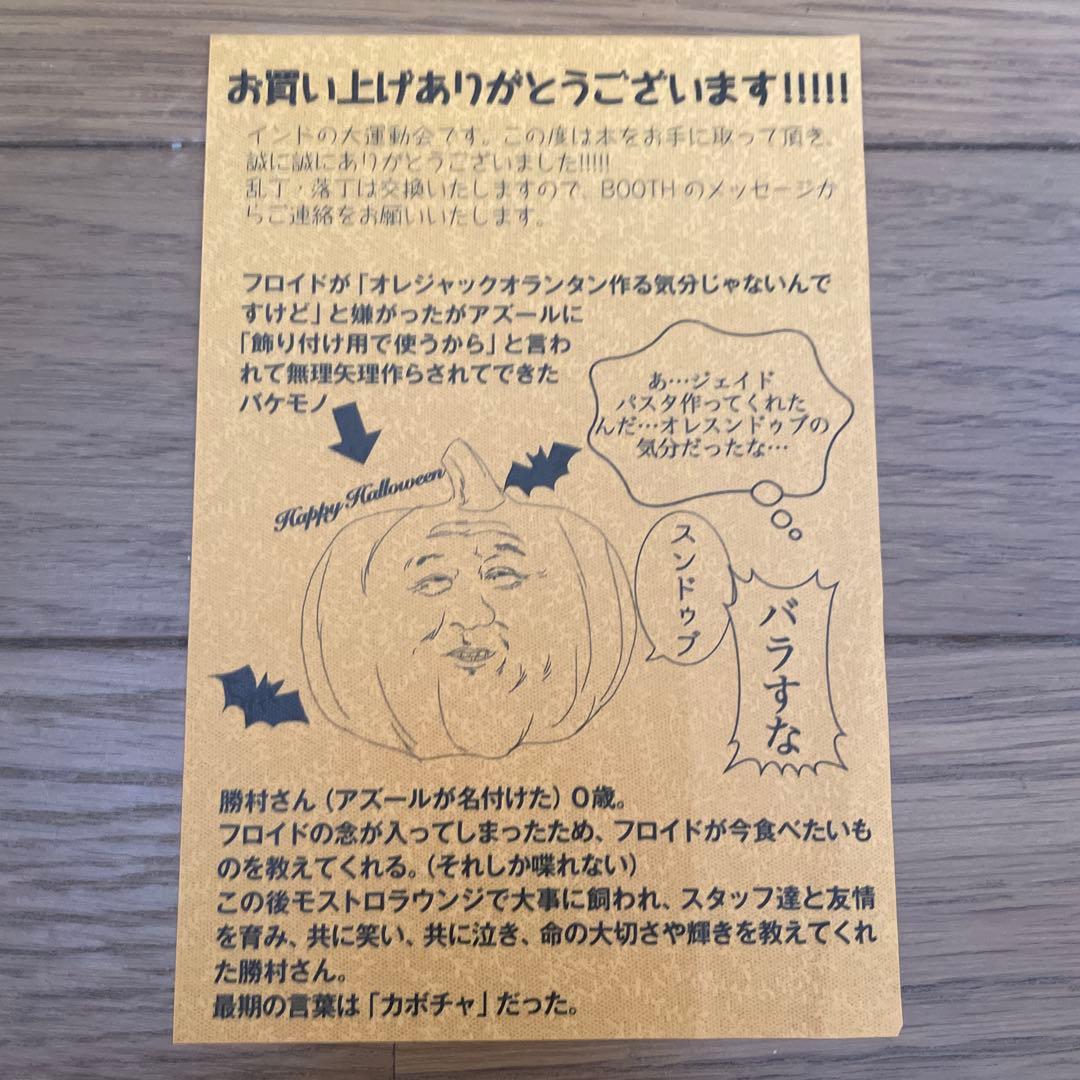 お買い上げありがとうございます!!!!!
インドの大運動会です。この度は本をお手に取って頂き、
誠に誠にありがとうございました!!!!!
乱丁・落丁は交換いたしますので、BOOTHのメッセージか
らご連絡をお願いいたします。
フロイドが「オレジャックオランタン作る気分じゃないんで
すけど」と嫌がったがアズールに
「飾り付け用で使うから」と言わ
れて無理矢理作らされてできた
バケモノ
あ…ジェイド
パスタ作ってくれた
んだ…オレスンドゥブの
気分だったな…
Happy Halloween
スンドゥブ
バラすな
勝村さん（アズールが名付けた）0歳。
フロイドの念が入ってしまったため、フロイドが今食べたいも
のを教えてくれる。（それしか喋れない）
この後モストロラウンジで大事に飼われ、スタッフ達と友情
を育み、共に笑い、共に泣き、命の大切さや輝きを教えてくれ
た勝村さん。
最期の言葉は「カボチャ」だった。